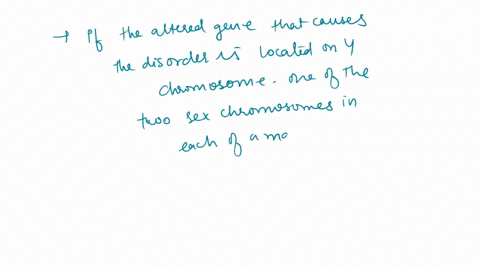 → If the altered gene that causes
the disorder is located on Y
chromosome. one of the
two sex chromosomes in
each of a ma